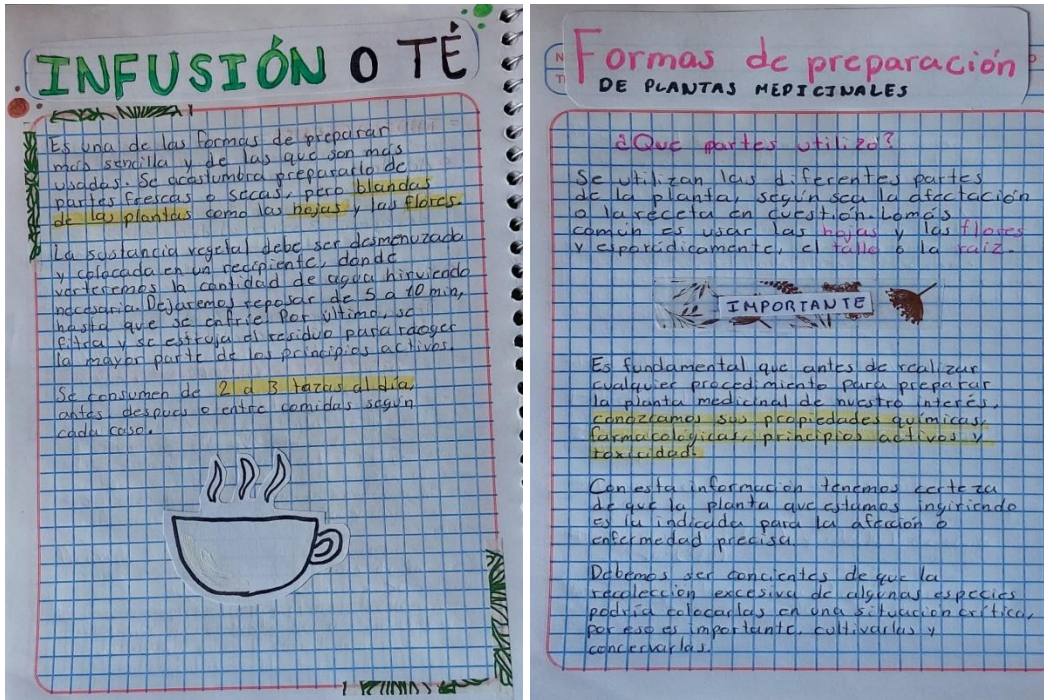 INFUSIÓN O TÉ
Es una de las formas de preparar
más sencilla y de las que son más
usadas. Se acostumbra prepararlo de
partes frescas o secas, pero blandas
de las plantas como las hojas y las flores.
La sustancia vegetal debe ser desmenuzada
y colocada en un recipiente, donde
verteremos la cantidad de agua hirviendo
necesaria. Dejaremos reposar de 5 a 10 min,
hasta que se enfríe. Por último, se
filtra y se estruja el residuo para recoger
la mayor parte de los principios activos.
Se consumen de 2 a 3 tazas al día,
antes despues o entre comidas según
cada caso.
Formas de preparación
DE PLANTAS MEDICINALES
¿Que partes utilizo?
Se utilizan las diferentes partes
de la planta, según sea la afectación
o la receta en cuestión. Lo más
común es usar las hojas y las flores
y esporádicamente, el tallo o la raíz.
IMPORTANTE
Es fundamental que antes de realizar
cualquier procedimiento para preparar
la planta medicinal de nuestro interés,
conozcamos sus propiedades químicas,
farmacológicas, principios activos y
toxicidad.
Con esta información tenemos certeza
de que la planta que estamos ingiriendo
es la indicada para la afección o
enfermedad precisa.
Debemos ser concientes de que la
recolección excesiva de algunas especies
podría colocarlas en una situación crítica,
por eso es importante, cultivarlas y
concervarlas.